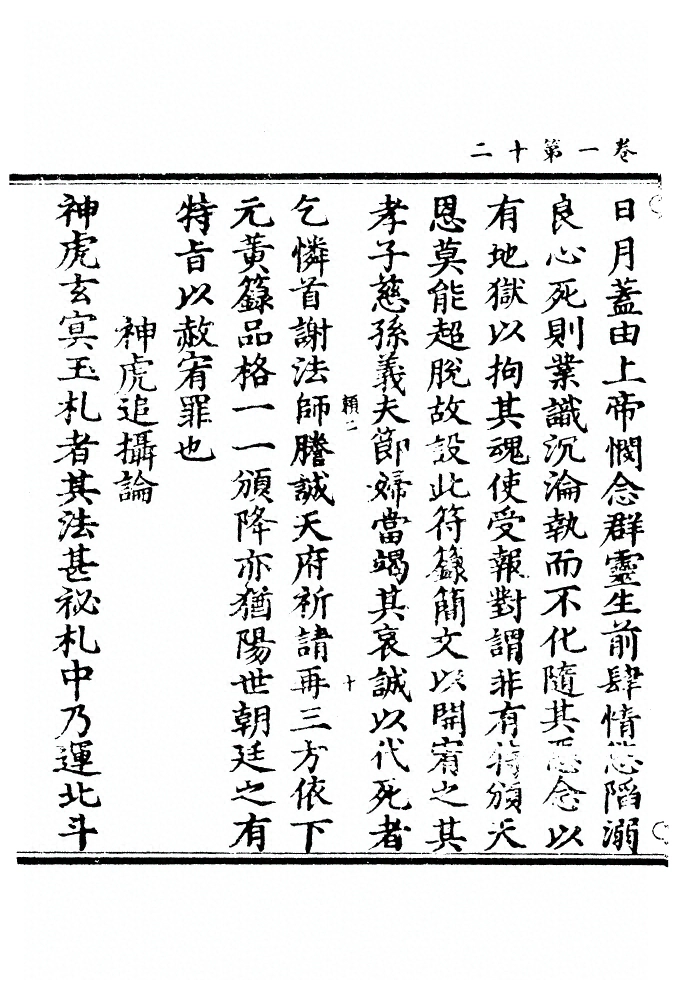 二十第一卷
日月蓋由上帝憫念群靈生前肆情慾陷溺
良心死則業識沉淪執而不化隨其惡念以
有地獄以拘其魂使受報對謂非有特頒天
恩莫能超脫故設此符籙簡文以開宥之其
孝子慈孫義夫節婦當竭其哀誠以代死者
頼二 十
乞憐首謝法師謄誠天府祈請再三方依下
元黃籙品格一一頒降亦猶陽世朝廷之有
特旨以赦宥罪也
神虎追攝論
神虎玄冥玉札者其法甚祕札中乃運北斗